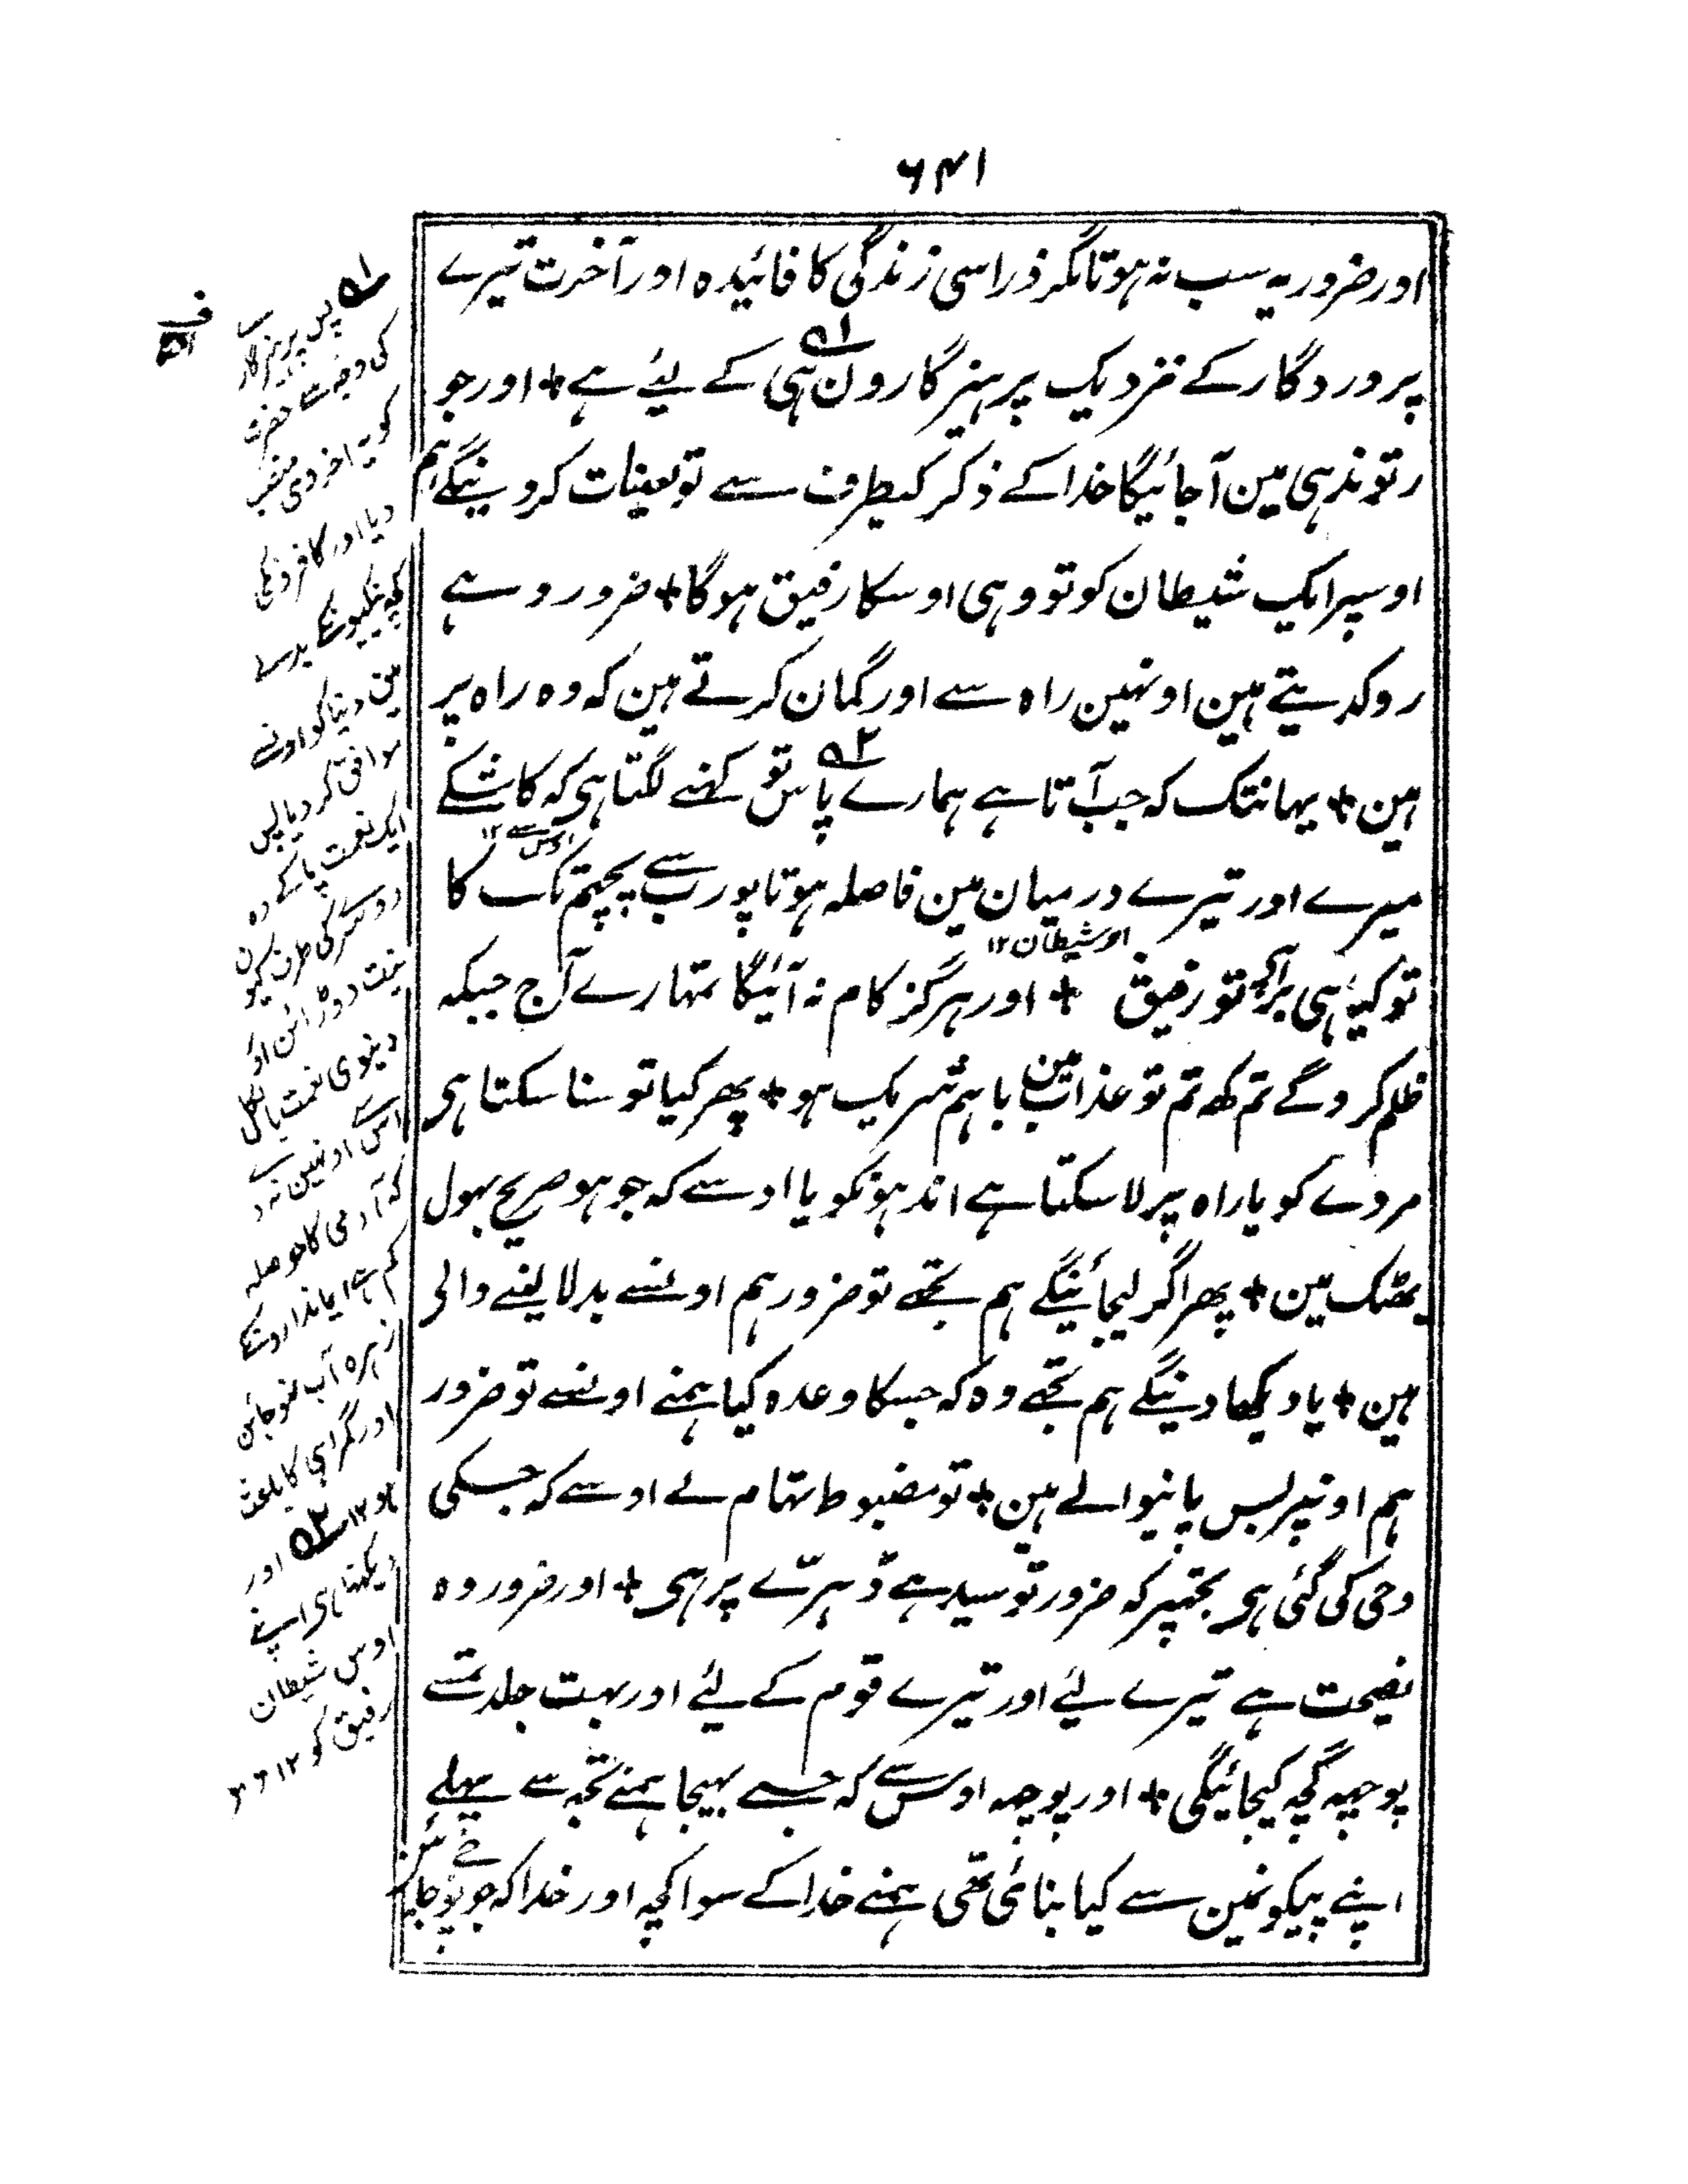 ۶۴۱
اور ضرور یہ سب نہ ہوتا مگر ذراسی زندگی کا فائیدہ اور آخرت تیرے
پروردگار کے نزدیک پرہیزگارون ہی کے لیئے ہے + اور جو
رتوندہی مین آجائیگا خدا کے ذکر کیطرف سے تو تعینات کردینگے ہم
اوسپر ایک شیطان کو تو وہی اوسکا رفیق ہوگا + ضرور وے
روکدیتے ہین اونہین راہ سے اور گمان کرتے ہین کہ وہ راہ پر
ہین + یہانتک کہ جب آتا ہے ہمارے پاس تو کہنے لگتا ہی کہ کاشکے
اوس سے ۱۲
میرے اور تیرے درمیان مین فاصلہ ہوتا پورب سے پچہم تک کا
اوشیطان ۱۲
تو کیا ہی برا ہے تو رفیق + اور ہرگز کام نہ آئیگا تمہارے آج جبکہ
ظلم کروگے تم کہ تم تو عذاب مین باہم شریک ہو + پھر کیا تو سنا سکتا ہی
مردے کو یا راہ پر لاسکتا ہے اندہونکو یا اوسے کہ جو ہو صریح بہول
بھٹک مین + پھر اگر لیجائینگے ہم تجھے تو ضرور ہم اونسے بدلا لینے والی
ہین + یا دیکھا دینگے ہم تجھے وہ کہ جسکا وعدہ کیا ہمنے اونسے تو ضرور
ہم اونپر بس پانیوالے ہین + تو مضبوط تہام لے اوسے کہ جسکی
وحی کی گئی ہی تجہپر کہ ضرور تو سیدہے ڈہرّے پر ہی + اور ضرور وہ
نصیحت ہے تیرے لیئے اور تیرے قوم کے لیئے اور بہت جلد تمسے
پوچہہ گچہ کیجائیگی + اور پوچہہ اوس سے کہ جسے بہیجا ہمنے تجہ سے پہلے
اپنے پیکونمین سے کیا بنائی تھی ہمنے خدا کے سوا کچہ اور خدا کہ جو پوجے جائین
ف
۵۱ پس پرہیزگاری
کی وجہ سے حضرت
کو یہ اخروی منصب
دیا اور کافرونکی
کچہ نیکیونکے بدلے
مین دنیا کو اونسے
موافق کردیا پس
ایک نعمت پاکے وہ
دوسرے کی طرف کیون
دنیوی نعمت بالکل
اسلئے اونہین نہ دے
کہ آدمی کا حوصلہ
کم ہے ایماندارونکے
زہرہ آب نہوجائین
اور گمراہی کا باعث
ہو ۱۲ ۵۲ اور
دیکہتا ہی اپنے
اوس شیطان
رفیق کو ۱۲